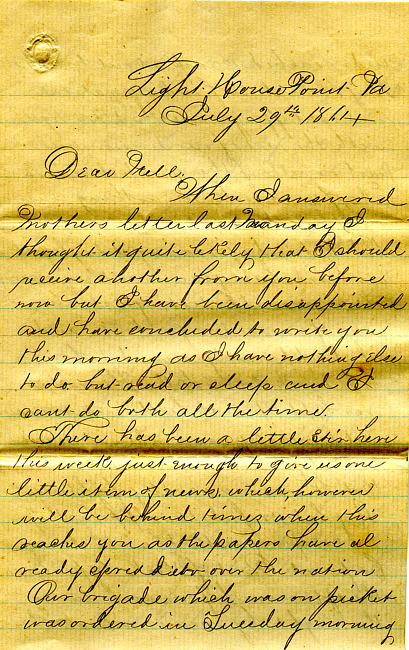 Light House Point Va
July 29th 1864
Dear Nell,
When I answered
Mothers letter last Monday I
thought it quite likely that I should
receive another from you before
now but I have been disappointed
and have concluded to write you
this morning as I have nothing else
to do but read or sleep and I
cant do both all the time.
There has been a little stir here
this week, just enough to give us one
little item of news, which, however
will be behind times when this
reaches you as the papers have al
ready spred it over the nation
Our brigade which was on picket
was ordered in Tuesday morning